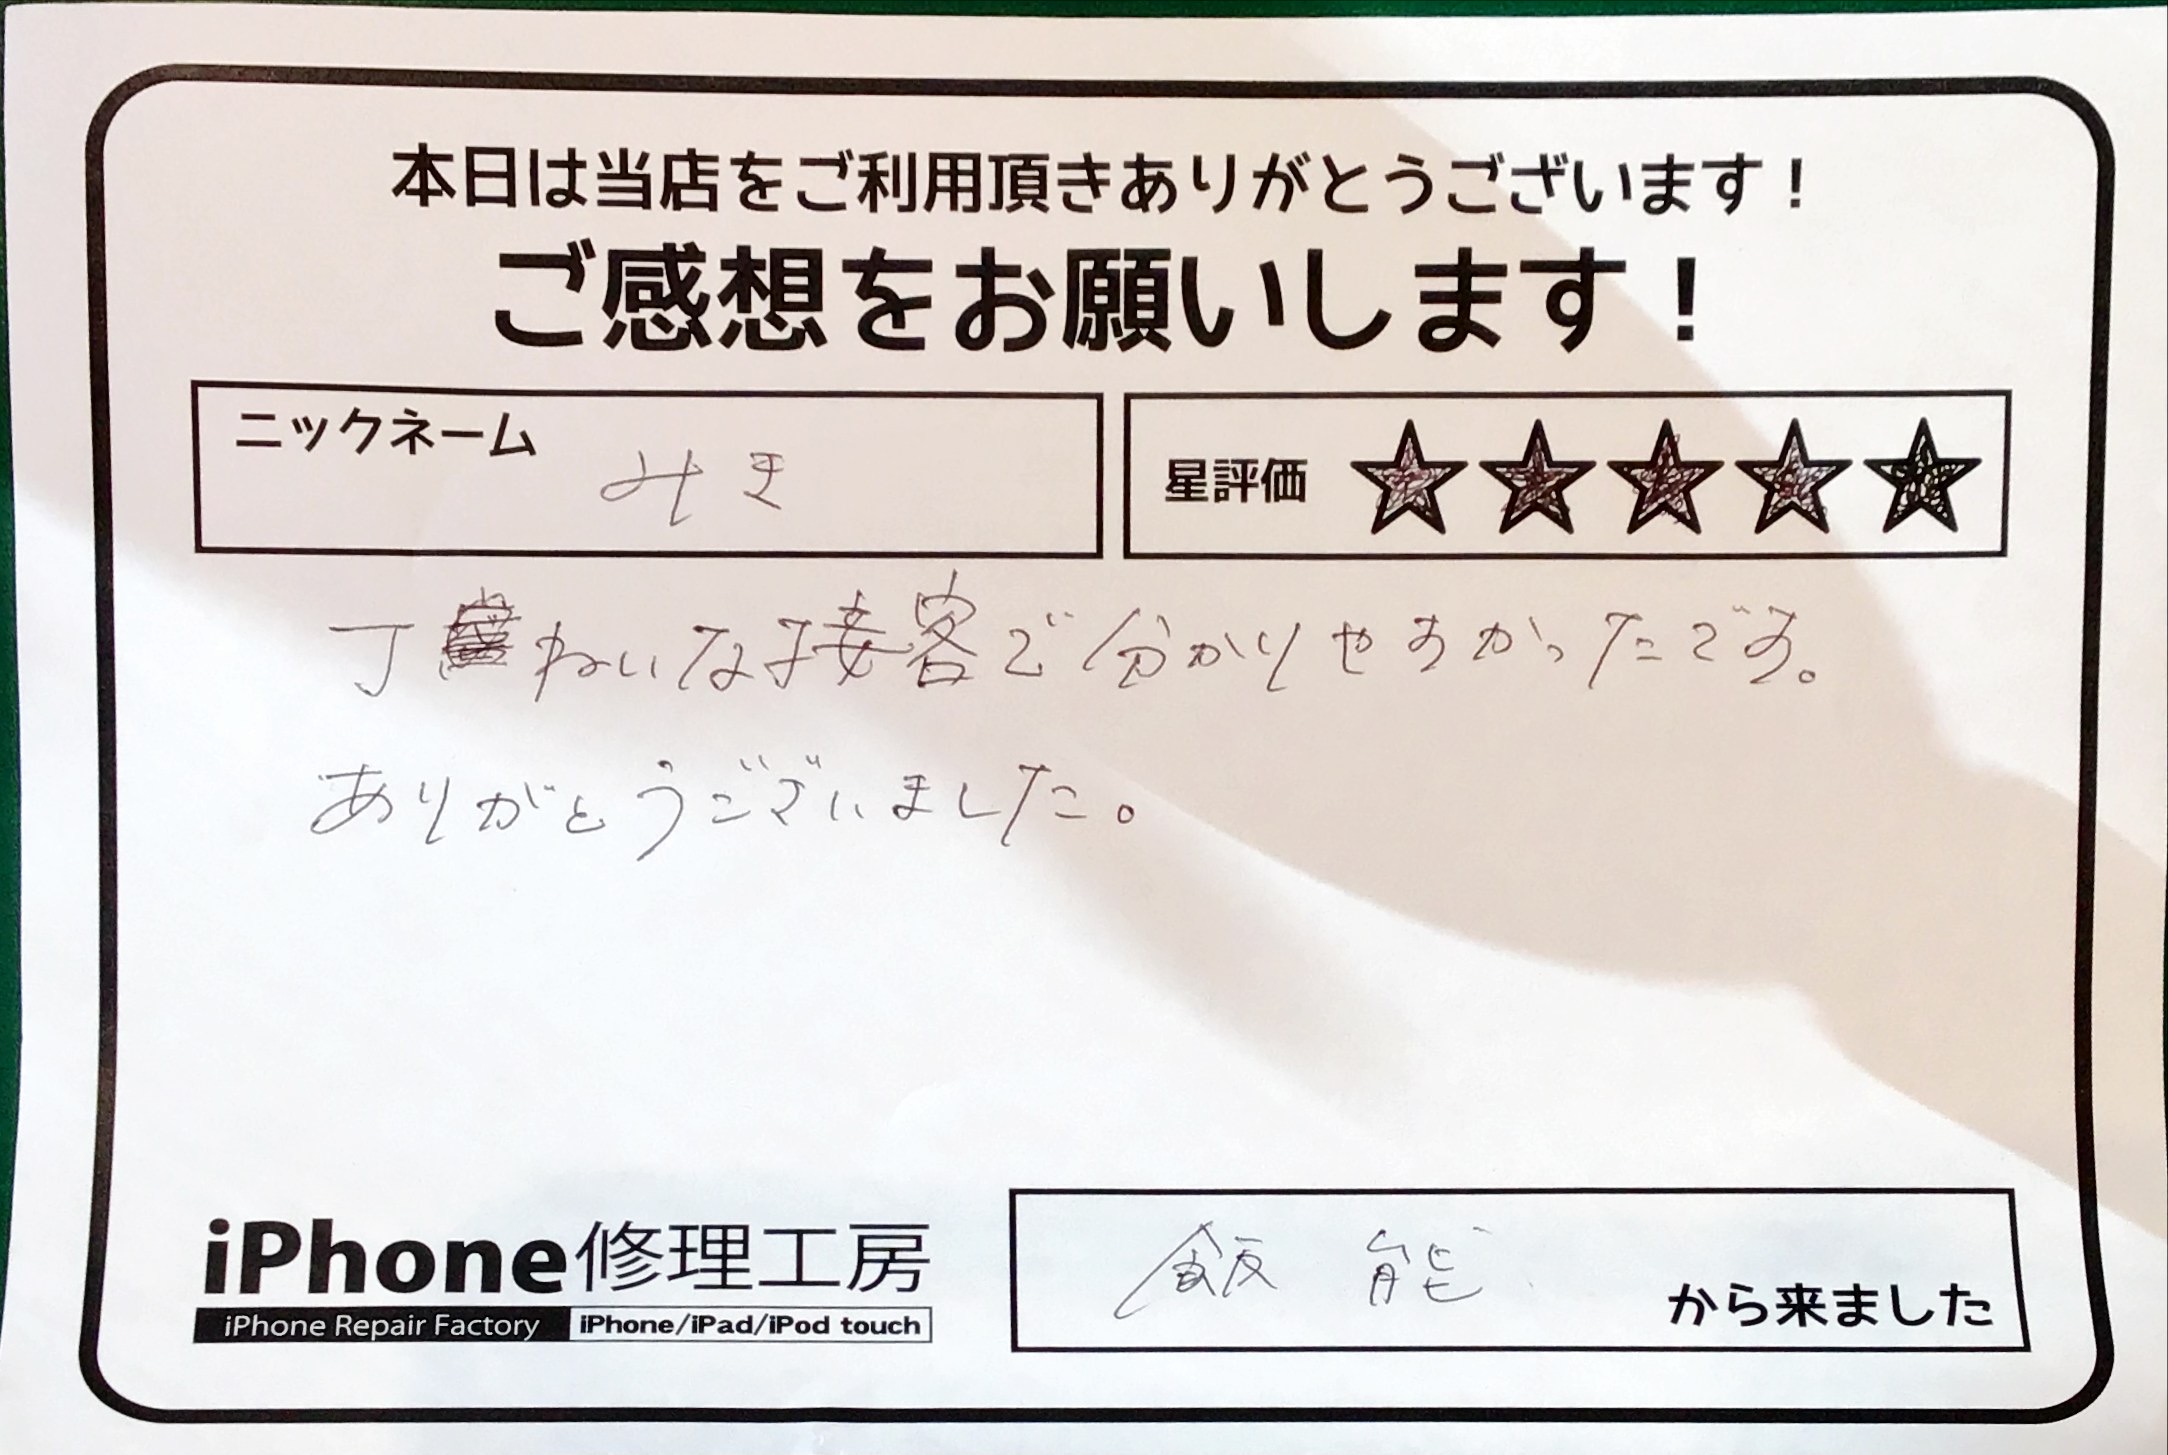 本日は当店をご利用頂きありがとうございます!
ご感想をお願いします!
ニックネーム みき
星評価 ★★★★★
丁ねいな接客で分かりやすかったです。
ありがとうございました。
iPhone修理工房
iPhone Repair Factory iPhone/iPad/iPod touch
飯能 から来ました